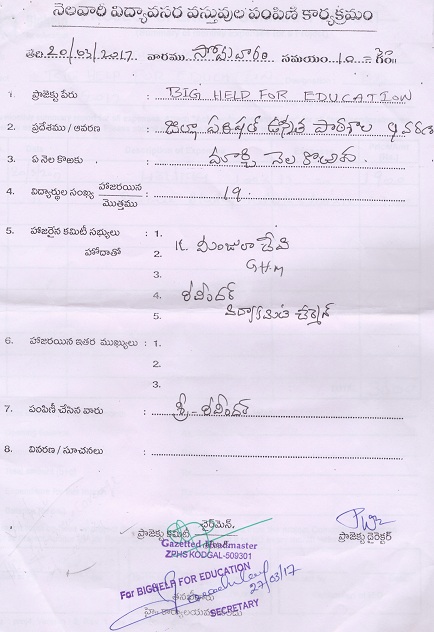 నెలవారీ విద్యావసర వస్తువుల పంపిణి కార్యక్రమం
తేది 20/03/2017 వారము సోమవారం సమయం 10=
1. ప్రాజెక్టు పేరు : BIG HELP FOR EDUCATION
2. ప్రదేశము / ఆవరణ : జిల్లా పరిషత్ ఉన్నత పాఠశాల ఆవరణ
3. ఏ నెల కొఱకు : మార్చి నెల కొఱకు.
4. విద్యార్థుల సంఖ్య హాజరయిన / మొత్తము : 19.
5. హాజరైన కమిటీ సభ్యులు : 1.
హోదాతో 2. K. మంజులా దేవి
3. GHM
4. రవీందర్
5. విద్యాకమిటి చైర్మన్
6. హాజరయిన ఇతర ముఖ్యులు : 1.
2.
3.
7. పంపిణీ చేసిన వారు : శ్రీ - రవీందర్
8. వివరణ / సూచనలు :
ప్రాజెక్టు కమిటీ ఛైర్‌మెన్.
ప్రాజెక్టు డైరెక్టర్
Gazetted Headmaster
ZPHS KODGAL-509301
For BIGHELP FOR EDUCATION
27/03/17
SECRETARY